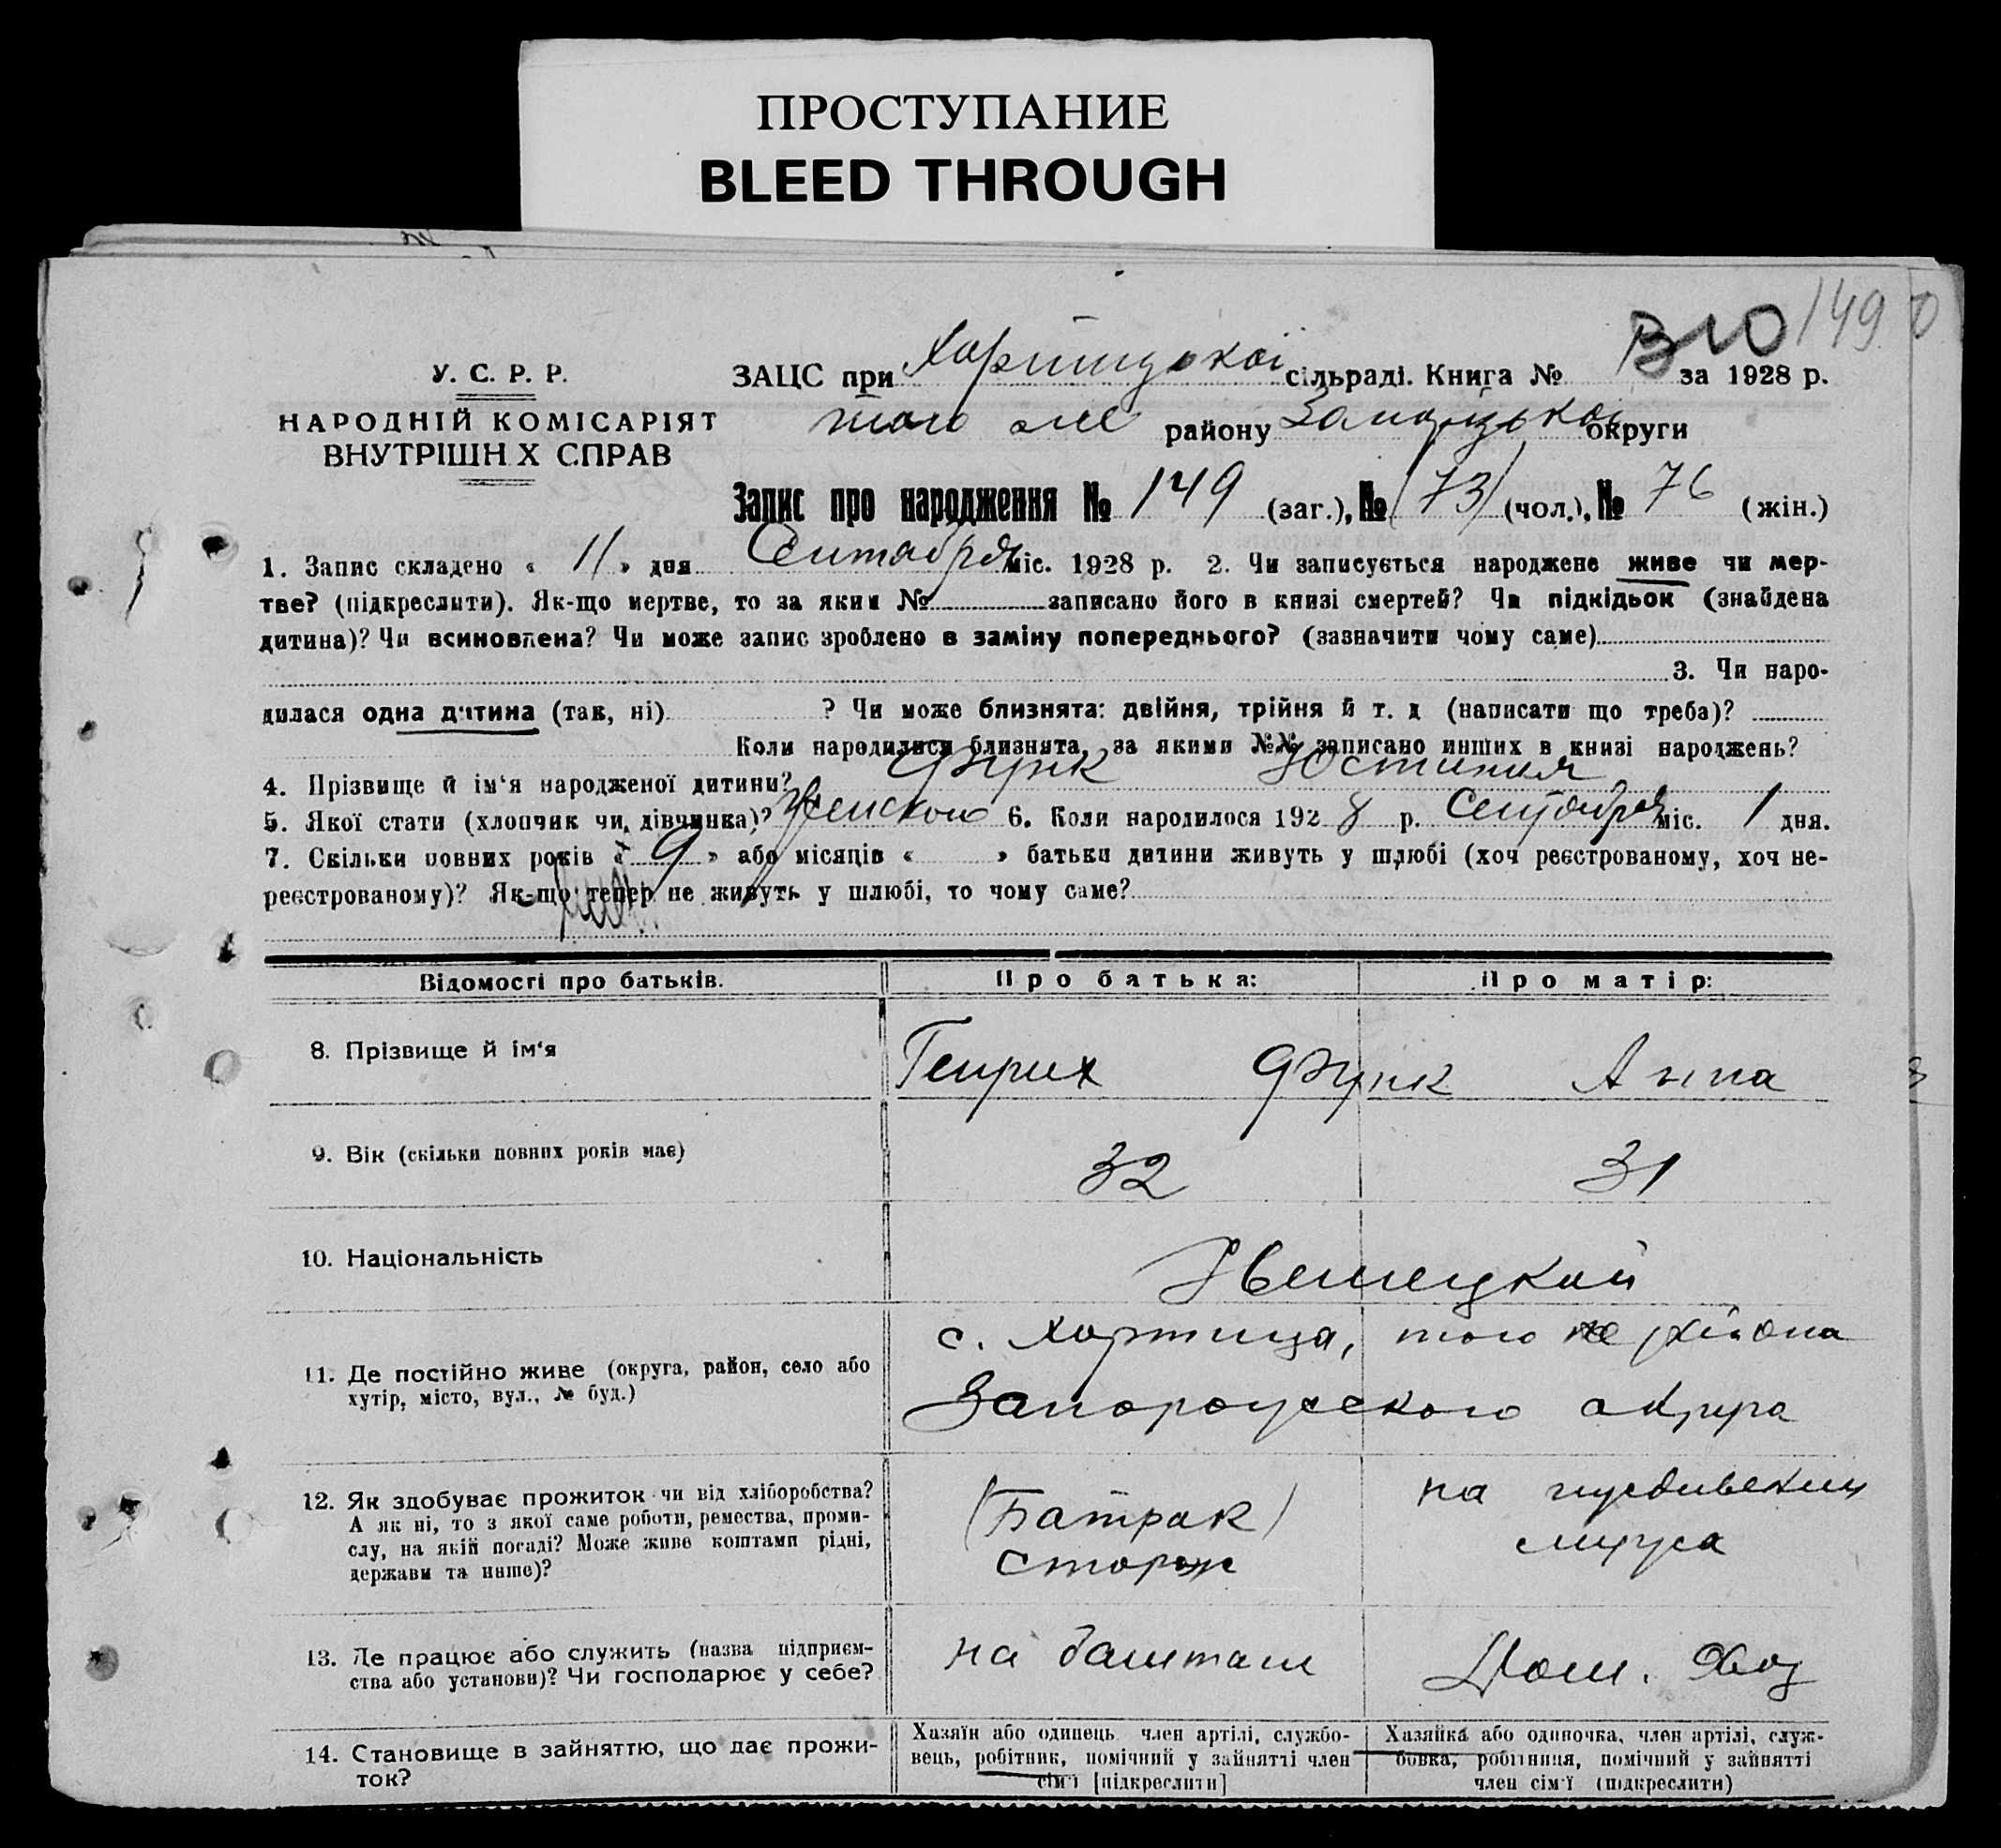 ПРОСТУПАНИЕ
BLEED THROUGH
149
У. С. Р. Р.
НАРОДНІЙ КОМІСАРІЯТ
ВНУТРІШН Х СПРАВ
ЗАЦС при Хортицької сільраді. Книга № за 1928 р.
того же району округи
Запис про народження № 149 (заг.), № (73) (чол.), № 76 (жін.)
1. Запис складено « 11 » дня Сентабря міс. 1928 р. 2. Чи записується народжене живе чи мер-
тве? (підкреслити). Як-що мертве, то за яким № записано його в книзі смертей? Чи підкідьок (знайдена
дитина)? Чи всиновлена? Чи може запис зроблено в заміну попереднього? (зазначити чому саме)
3. Чи наро-
дилася одна дитина (так, ні) ? Чи може близнята: двійня, трійня й т. д (написати що треба)?
Коли народилися близнята, за якими №№ записано инших в книзі народжень?
4. Прізвище й ім‘я народженої дитини? Функ Юстиния
5. Якої стати (хлопчик чи дівчинка)? Женского 6. Коли народилося 1928 р. Сентабря міс. 1 дня.
7. Скільки повних років « 9 » або місяців « » батьки дитини живуть у шлюбі (хоч реєстрованому, хоч не-
реєстрованому)? Як-що тепер не живуть у шлюбі, то чому саме?
Відомості про батьків. Про батька: Про матір:
8. Прізвище й ім‘я Генрих Функ Анна
9. Вік (скільки повних років має) 32 31
10. Національність Немецкой
11. Де постійно живе (округа, район, село або
хутір, місто, вул., № буд.)
с. Хортица, того же района
Запорожского округа
12. Як здобуває прожиток чи від хліборобства?
А як ні, то з якої саме роботи, ремества, проми-
слу, на якій посаді? Може живе коштами рідні,
держави та инше)?
(Батрак)
сторож
на иждивении
мужа
13. Де працює або служить (назва підприєм-
ства або установи)? Чи господарює у себе?
на баштан
Дом. Хоз
14. Становище в зайняттю, що дає прожи-
ток?
Хазяїн або одинець член артілі, службо-
вець, робітник, помічний у зайнятті член
сім‘ї [підкреслити]
Хазяйка або одиночка, член артілі, служ-
бовка, робітниця, помічний у зайнятті
член сім‘ї (підкреслити)